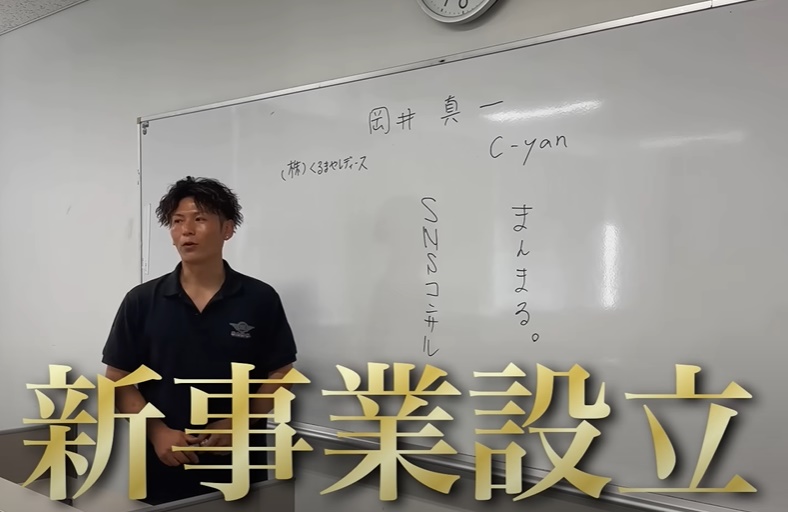 岡井 真一
C-yan
(株)くるまやレディース
まんまる。
SNSコンサル
新事業設立